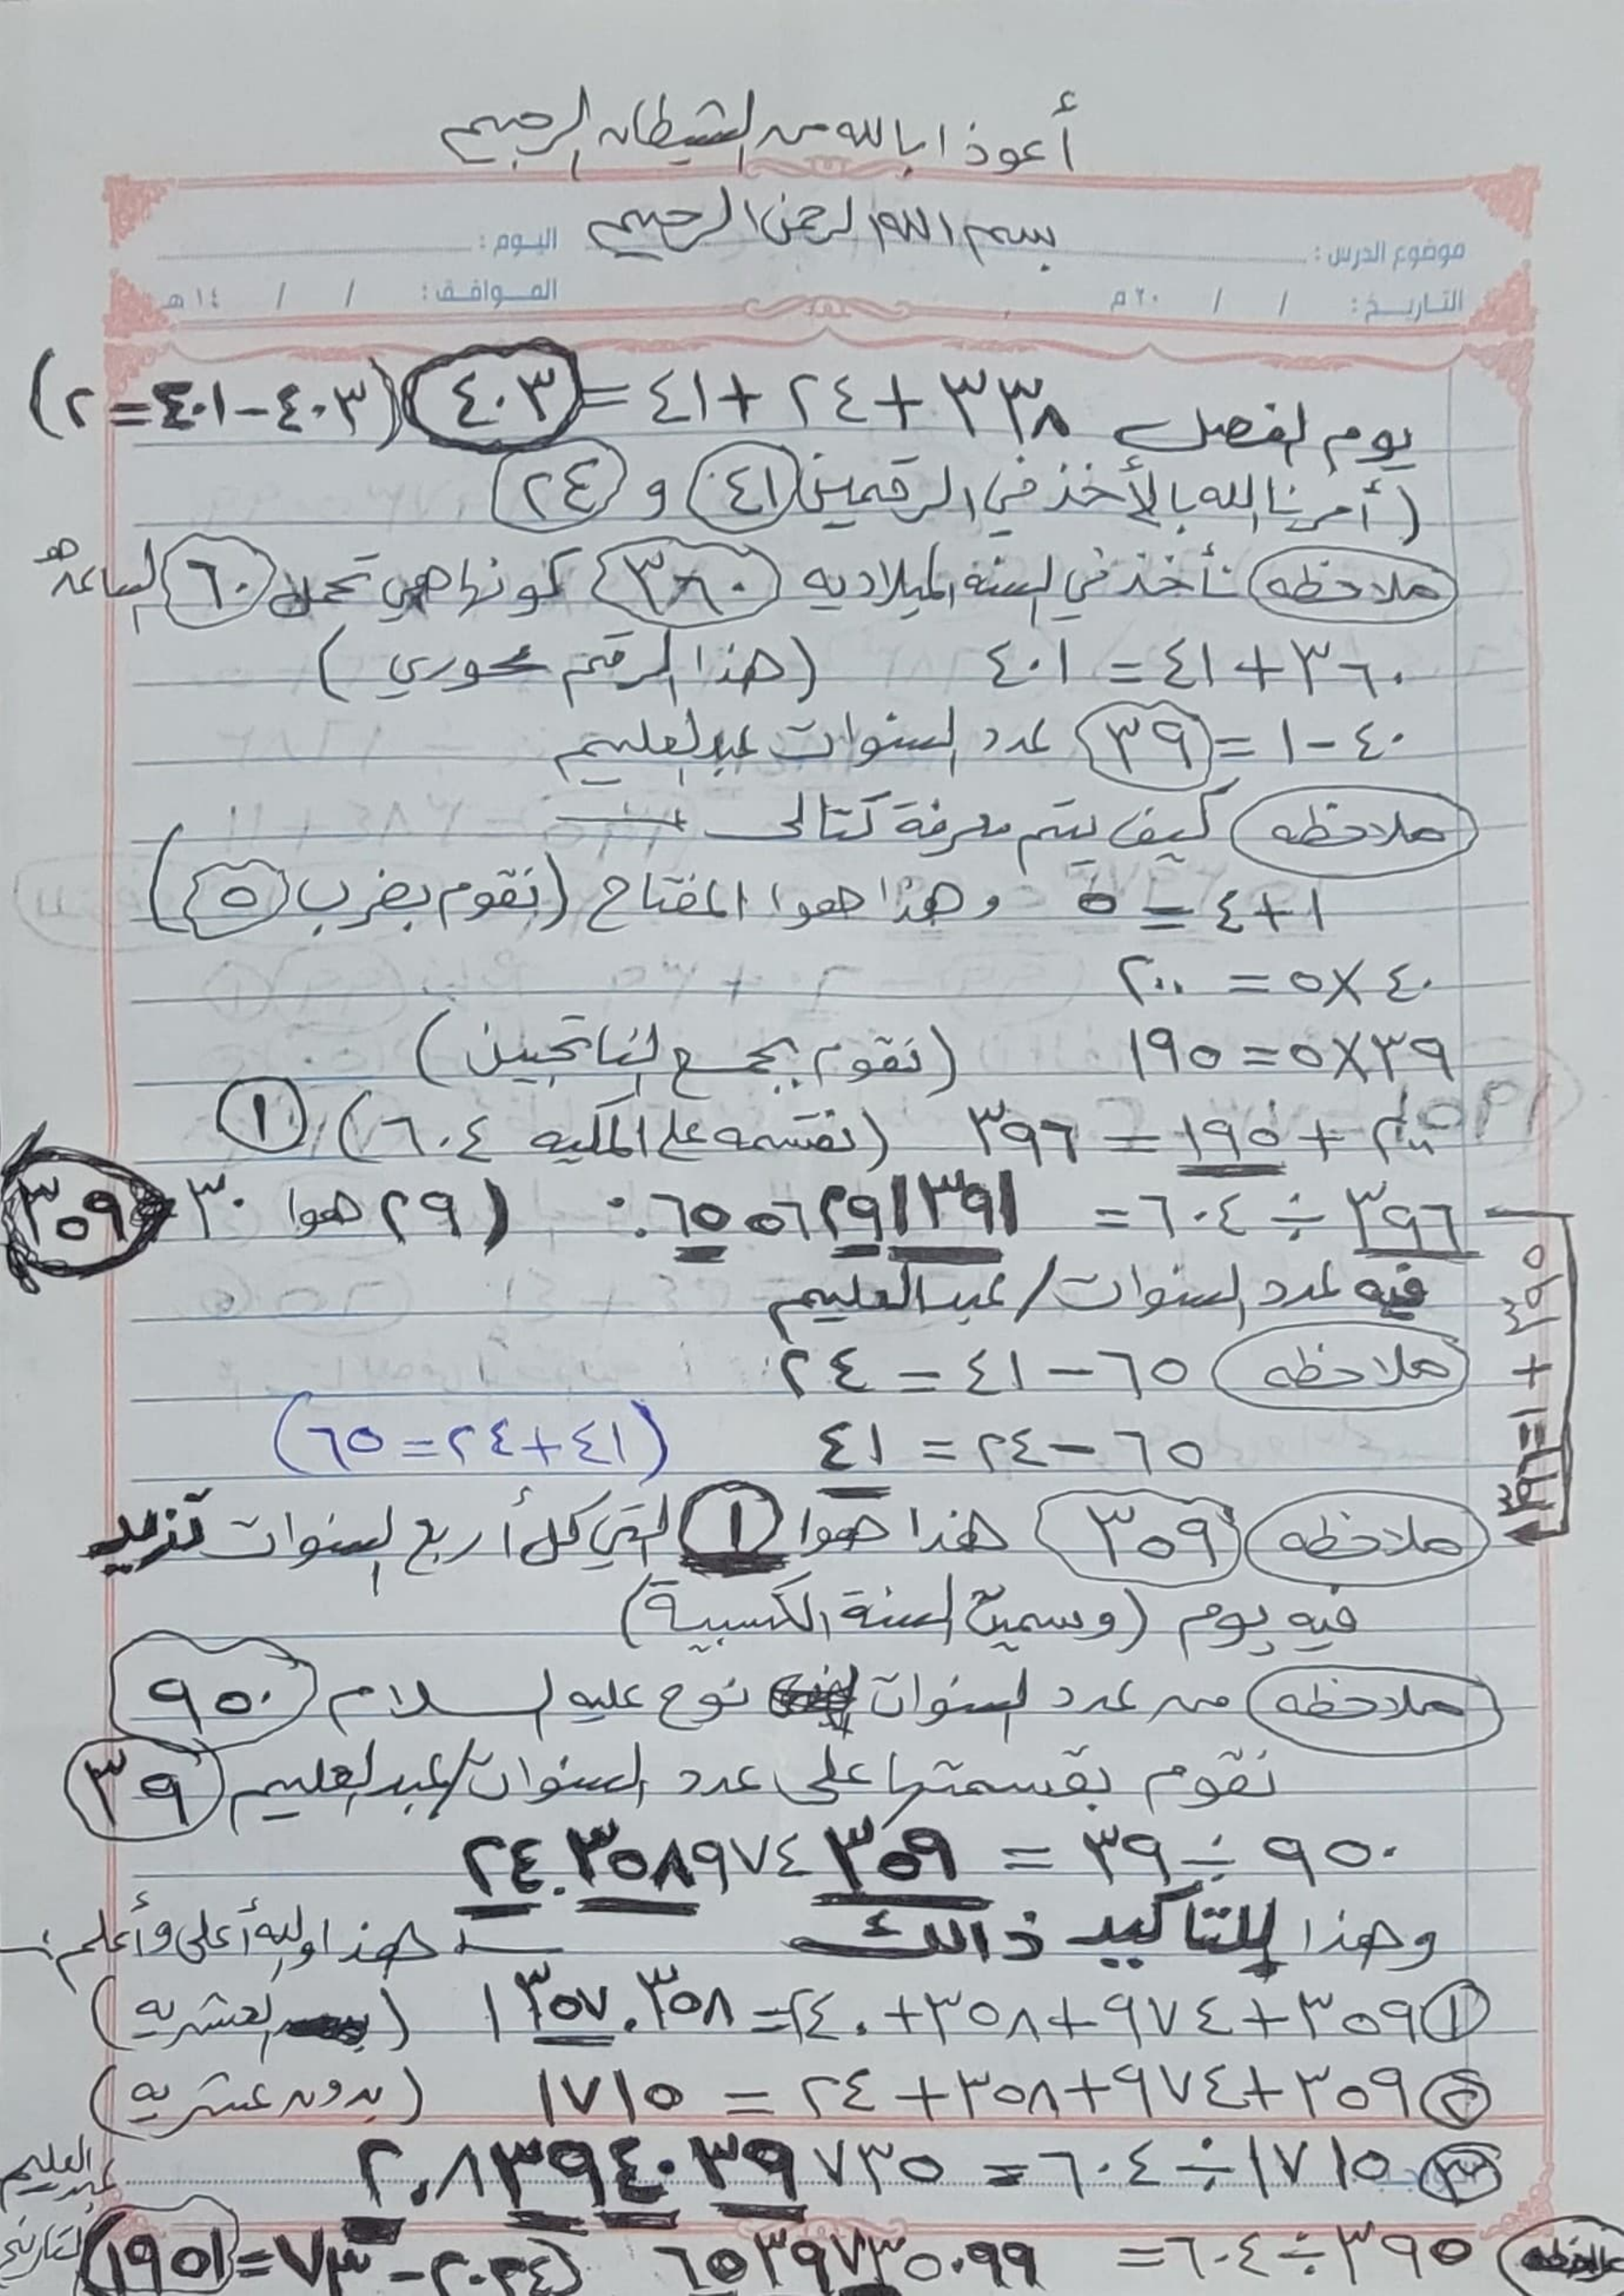 أعوذ ا بالله من الشيطان الرجيم
بسم الله الرحمن الرحيم
موضوع الدرس : اليوم :
التاريخ : / / ٢٠م الموافق : / / ١٤هـ
يوم لفصل ٣٣٨ + ٢٤ + ٤١ = ٤٠٣ (٤٠٣-٤٠١=٢)
(أمرنا الله بالأخذ في الرقمين ٤١ و ٢٤
ملاحظه نأخذ في السنه الميلاديه ٣٦٠ كونها هي تحمل ٦٠ الساعه هو
٣٦٠ + ٤١ = ٤٠١ (هذا الرقم محوري)
٤٠ - ١ = ٣٩ عدد السنوات عبدالعليم
ملاحظه كيف يتم معرفة كتالى
١ + ٤ = ٥ وهذا هوا المفتاح (نقوم بضرب ٥)
٤٠ × ٥ = ٢٠٠
٣٩ × ٥ = ١٩٥ (نقوم بجمع الناتجين)
٢٠٠ + ١٩٥ = ٣٩٦ (نقسمه على الملكيه ٦٠٤) ١
٣٩٦ ÷ ٦٠٤ = ٦٥٥٦٢٩١٣٩١.: (٢٩ هوا ٣٠ ٣٥٩
٣٩٥ + ١ = ٣٩٦
فيه عدد السنوات / عبدالعليم
ملاحظه ٦٥ - ٤١ = ٢٤
٦٥ - ٢٤ = ٤١ (٤١+٢٤=٦٥)
ملاحظه ٣٥٩ هذا هوا ١ التي كل أربع السنوات تزيد
فيه يوم (وسمية السنة الكسبية)
ملاحظه من عدد السنوات نوح عليه السلام ٩٥٠
نقوم بقسمتها على عدد السنوات/عبدالعليم ٣٩
٩٥٠ ÷ ٣٩ = ٢٤.٣٥٨٩٧٤٣٥٩
وهذا للتأكيد ذالك هذا والله أعلى وأعلم :
١ ٣٥٩+٩٧٤+٣٥٨+٢٤.٠=١٣٥٧.٣٥٨ (العشريه)
٢ ٣٥٩+٩٧٤+٣٥٨+٢٤ = ١٧١٥ (بدون عشريه)
٣ ١٧١٥ ÷ ٦٠٤ = ٢.٨٣٩٤٠٣٩٧٣٥
عبدالعليم
ملاحظه ٣٩٥ ÷ ٦٠٤ = ٦٥٣٩٧٣٥٠.٩٩ (٢٠٢٤ - ٧٣ = ١٩٥١) التاريخ